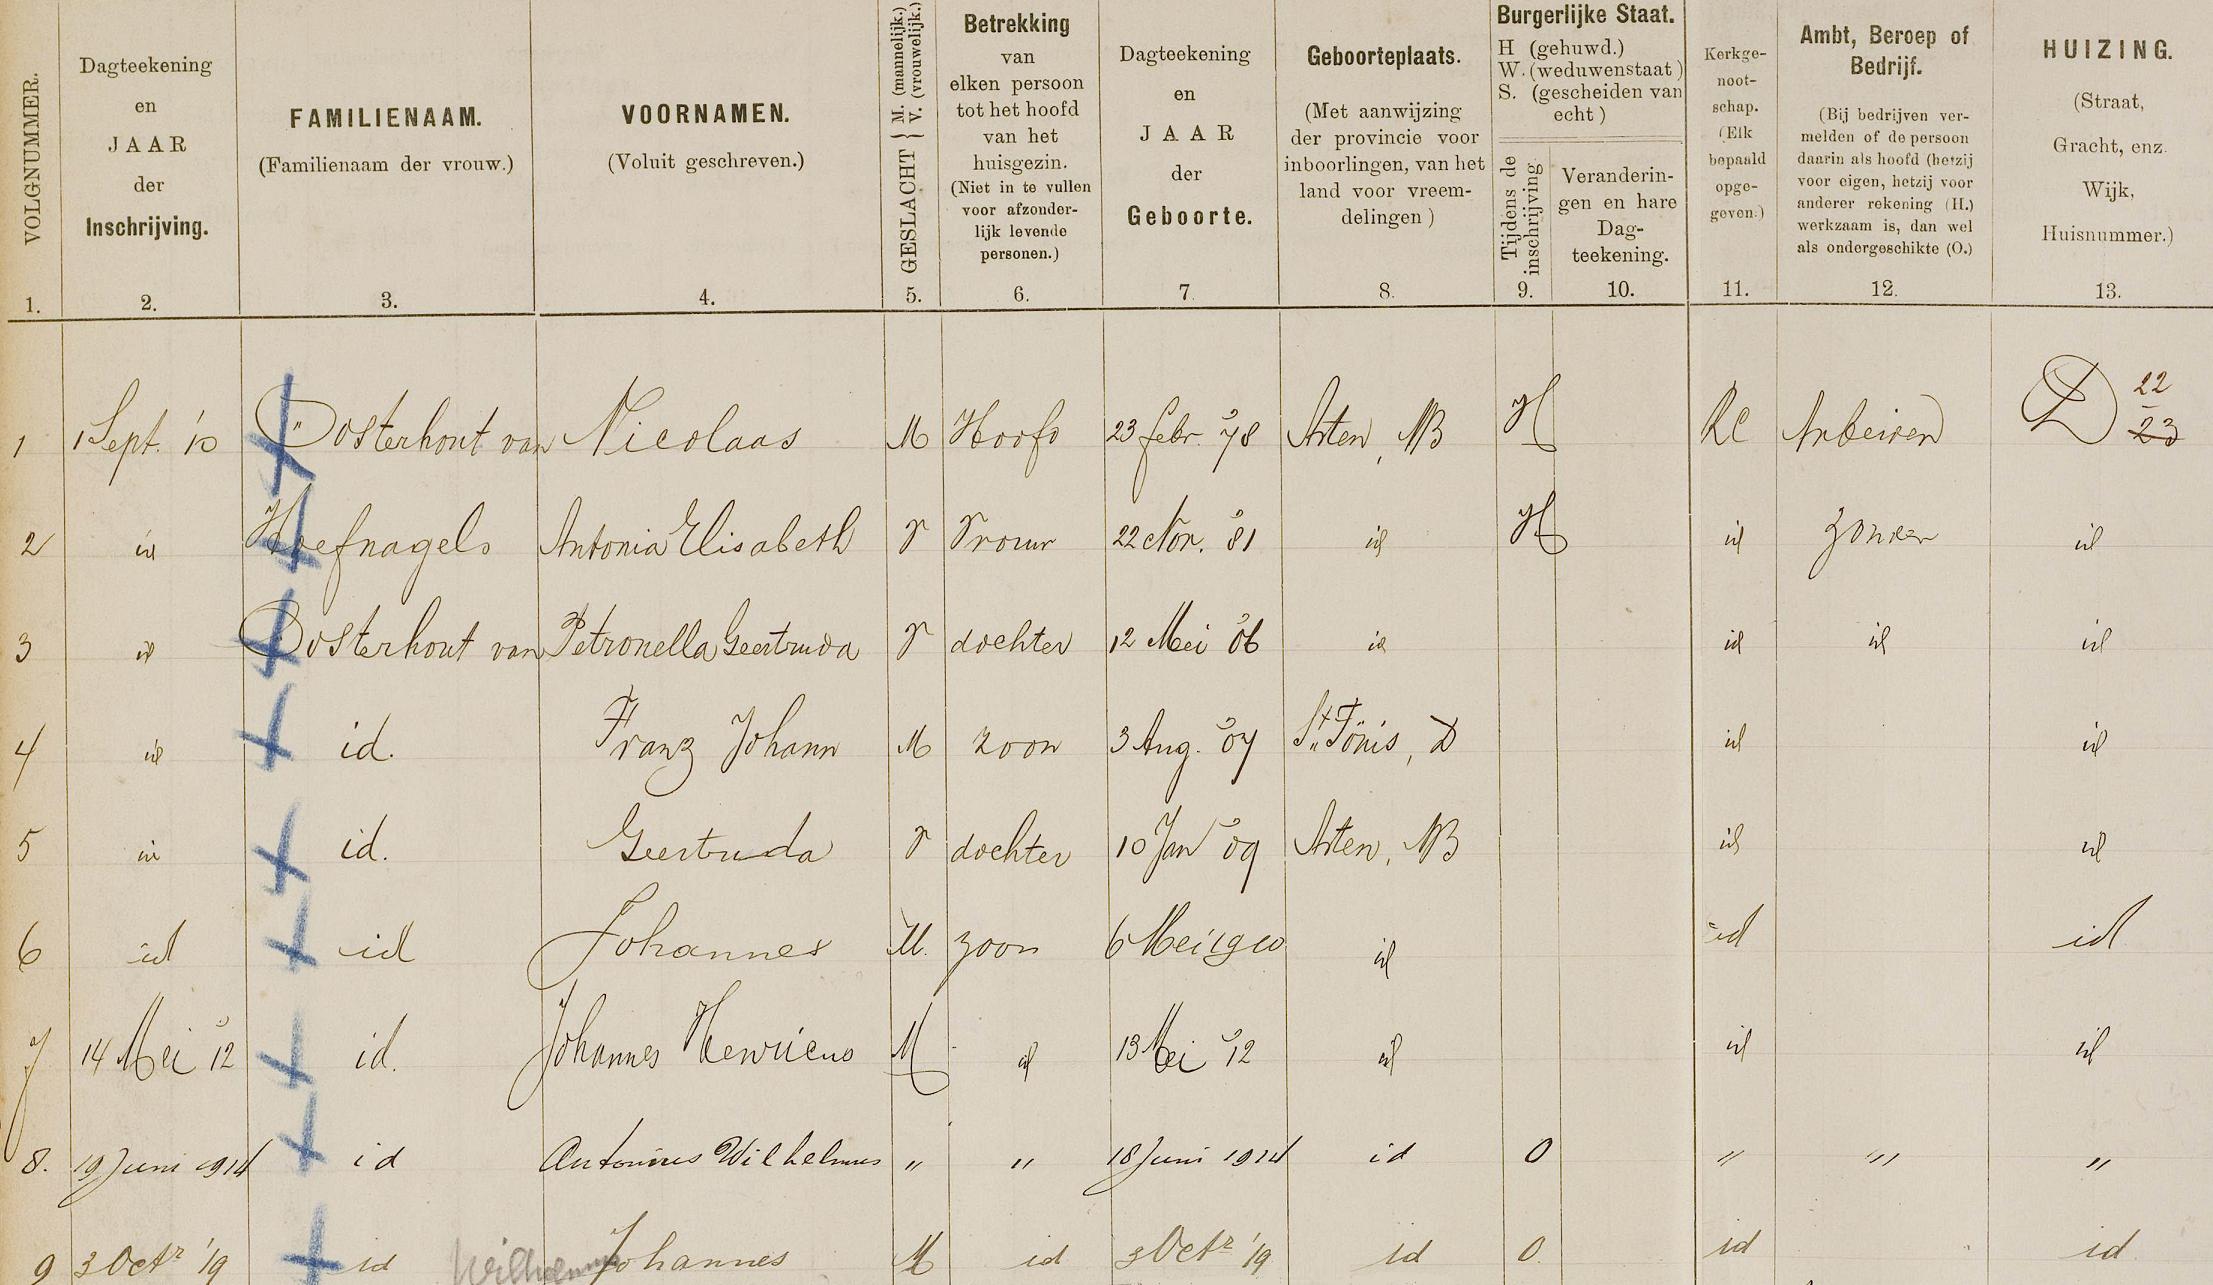 VOLGNUMMER.
1.
Dagteekening
en
JAAR
der
Inschrijving.
2.
FAMILIENAAM.
(Familienaam der vrouw.)
3.
VOORNAMEN.
(Voluit geschreven.)
4.
GESLACHT { M. (mannelijk.)
V. (vrouwelijk.)
5.
Betrekking
van
elken persoon
tot het hoofd
van het
huisgezin.
(Niet in te vullen
voor afzonder-
lijk levende
personen.)
6.
Dagteekening
en
JAAR
der
Geboorte.
7.
Geboorteplaats.
(Met aanwijzing
der provincie voor
inboorlingen, van het
land voor vreem-
delingen)
8.
Burgerlijke Staat.
H (gehuwd.)
W. (weduwenstaat)
S. (gescheiden van
echt)
Tijdens de
inschrijving
9.
Veranderin-
gen en hare
Dag-
teekening.
10.
Kerkge-
noot-
schap.
(Elk
bepaald
opge-
geven.)
11.
Ambt, Beroep of
Bedrijf.
(Bij bedrijven ver-
melden of de persoon
daarin als hoofd (hetzij
voor eigen, hetzij voor
anderer rekening (H.)
werkzaam is, dan wel
als ondergeschikte (O.)
12.
HUIZING.
(Straat,
Gracht, enz.
Wijk,
Huisnummer.)
13.
1 1 Sept. '10 Oosterhout van Nicolaas M Hoofd 23 febr. '78 Asten, NB H RC Arbeider D 22 23
2 id Hoefnagels Antonia Elisabeth V Vrouw 22 Nov. '81 id H id zonder id
3 id Oosterhout van Petronella Geertruda V dochter 12 Mei '06 id id id id
4 id id. Franz Johann M zoon 3 Aug. '07 St. Tönis, D id id
5 id id. Geertruda V dochter 10 Jan '09 Asten, NB id id
6 id id Johannes M. zoon 6 Mei 1910 id id id
7 14 Mei '12 id. Johannes Henricus M id 13 Mei '12 id id id
8. 19 Juni 1914 id Antonius Wilhelmus " " 18 Juni 1914 id O " " "
9 3 Octr '19 id Wilhelmus Johannes M id 3 Octr '19 id O. id id